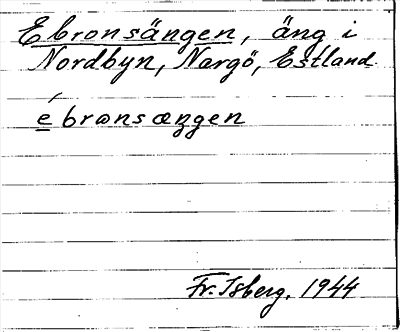 Ebronsängen, äng i
Nordbyn, Nargö, Estland.
ebronsæŋen
Fr. Isberg. 1944